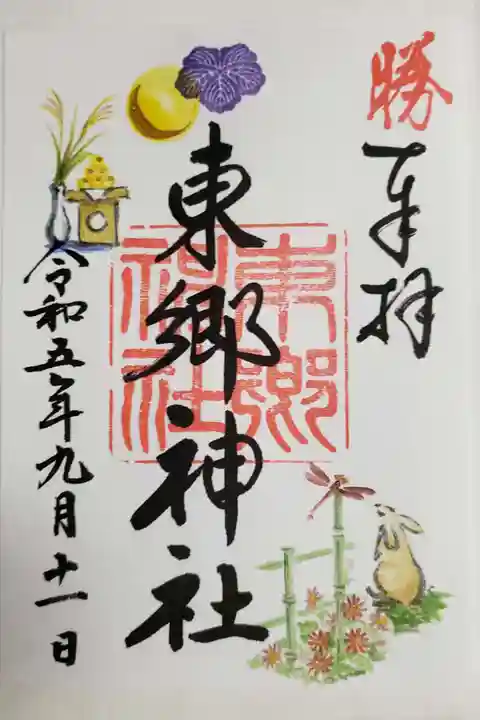 勝
奉拝
東郷神社
東郷神社
令和五年九月十一日